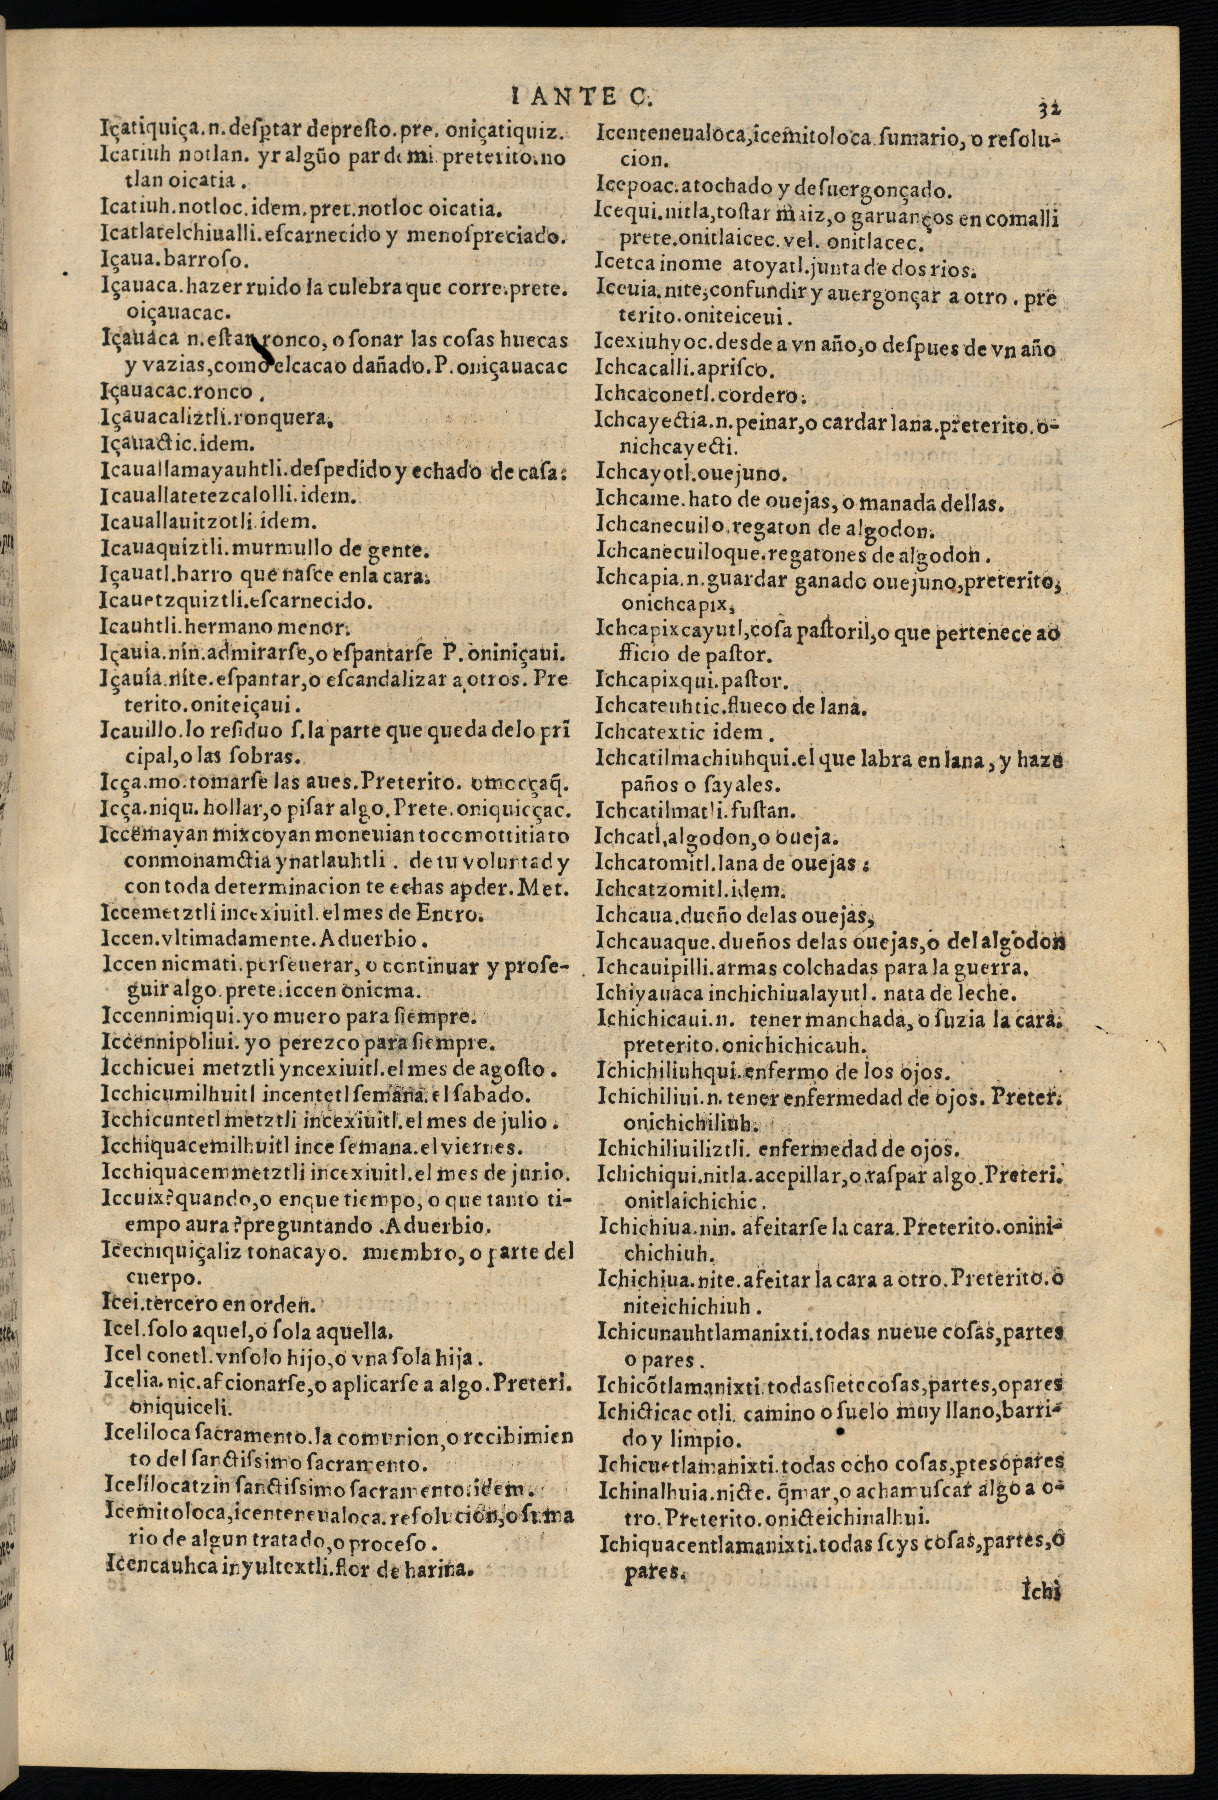 I ANTE C.
32
Içatiquiça.n.desptar depresto.pre. oniçatiquiz.
Icatiuh notlan. yr algũo par de mi. preterito.no
tlan oicatia.
Icatiuh.notloc.idem.pret.notloc oicatia.
Icatlatelchiualli.escarnecido y menospreciado.
Içaua.barroso.
Içauaca.hazer ruido la culebra que corre.prete.
oiçauacac.
Içauaca n.estar ronco, o sonar las cosas huecas
y vazias,como elcacao dañado.P.oniçauacac
Içauacac.ronco.
Içauacaliztli.ronquera.
Içauactic.idem.
Icauallamayauhtli.despedido y echado de casa:
Icauallatetezcalolli.idem.
Icauallauitzotli.idem.
Icauaquiztli.murmullo de gente.
Içauatl.barro que nasce enla cara.
Icauetzquiztli.escarnecido.
Icauhtli.hermano menor.
Içauia.nin.admirarse,o espantarse P.oniniçaui.
Içauia.nite.espantar,o escandalizar a otros. Pre
terito.oniteiçaui.
Icauillo.lo residuo s.la parte que queda delo pri͂
cipal,o las sobras.
Icça.mo.tomarse las aues.Preterito. omocçaq̃.
Icça.niqu.hollar,o pisar algo.Prete.oniquicçac.
Iccemayan mixcoyan moneuian tocomottitiato
conmonamictia ynatlauhtli. de tu voluntad y
con toda determinacion te echas apder.Met.
Iccemetztli incexiuitl.el mes de Enero.
Iccen.vltimadamente.Aduerbio.
Iccen nicmati.perseuerar, o continuar y prose-
guir algo.prete.iccen onicma.
Iccennimiqui.yo muero para siempre.
Iccennipoliui.yo perezco para siempre.
Icchicuei metztli yncexiuitl.el mes de agosto.
Icchicumilhuitl incentetl semana.el sabado.
Icchicuntetl metztli incexiuitl.el mes de julio.
Icchiquacemilhuitl ince semana.el viernes.
Icchiquacemmetztli incexiuitl.el mes de junio.
Iccuix?quando,o enque tiempo, o que tanto ti-
empo aura?preguntando.Aduerbio.
Icecniquiçaliz tonacayo. miembro, o parte del
cuerpo.
Icei.tercero en orden.
Icel.solo aquel,o sola aquella.
Icel conetl.vnsolo hijo,o vna sola hija.
Icelia.nic.aficionarse,o aplicarse a algo.Preteri.
oniquiceli.
Iceliloca sacramento.la comunion,o recibimien
to del sanctissimo sacramento.
Icelilocatzin sanctissimo sacramento.idem.
Icemitoloca,icenteneualoca.resolucion,o suma
rio de algun tratado,o proceso.
Icencauhca in yultextli.flor de harina.
Icenteneualoca,icemitoloca sumario, o resolu-
cion.
Icepoac.atochado y desuergonçado.
Icequi.nitla,tostar maiz,o garuanços en comalli
prete.onitlaicec.vel. onitlacec.
Icetca inome atoyatl.junta de dos rios.
Iceuia.nite,confundir y auergonçar a otro. pre
terito.oniteiceui.
Icexiuhyoc.desde a vn año,o despues de vn año
Ichcacalli.aprisco.
Ichcaconetl.cordero.
Ichcayectia.n.peinar,o cardar lana.preterito.o-
nichcayecti.
Ichcayotl.ouejuno.
Ichcame.hato de ouejas, o manada dellas.
Ichcanecuilo.regaton de algodon.
Ichcanecuiloque.regatones de algodon.
Ichcapia.n.guardar ganado ouejuno,preterito,
onichcapix.
Ichcapixcayutl,cosa pastoril,o que pertenece ao
fficio de pastor.
Ichcapixqui.pastor.
Ichcateuhtic.flueco de lana.
Ichcatextic idem.
Ichcatilmachiuhqui.el que labra en lana, y haze
paños o sayales.
Ichcatilmatli.fustan.
Ichcatl.algodon,o oueja.
Ichcatomitl.lana de ouejas:
Ichcatzomitl.idem.
Ichcaua.dueño delas ouejas,
Ichcauaque.dueños delas ouejas,o del algodon
Ichcauipilli.armas colchadas para la guerra.
Ichiyauaca inchichiualayutl. nata de leche.
Ichichicaui.n. tener manchada, o suzia la cara.
preterito.onichichicauh.
Ichichiliuhqui.enfermo de los ojos.
Ichichiliui.n.tener enfermedad de ojos. Preter.
onichichiliuh.
Ichichiliuiliztli. enfermedad de ojos.
Ichichiqui.nitla.acepillar,o raspar algo.Preteri.
onitlaichichic.
Ichichiua.nin. afeitarse la cara.Preterito.onini-
chichiuh.
Ichichiua.nite.afeitar la cara a otro.Preterito.o
niteichichiuh.
Ichicunauhtlamanixti.todas nueue cosas,partes
o pares.
Ichicõtlamanixti.todas siete cosas,partes,opares
Ichicticac otli. camino o suelo muy llano,barri-
do y limpio.
Ichicuetlamanixti.todas ocho cosas,ptesopares
Ichinalhuia.nicte. q̃mar,o achamuscar algo a o-
tro.Preterito.onicteichinalhui.
Ichiquacentlamanixti.todas seys cosas,partes,o
pares.
Ichi